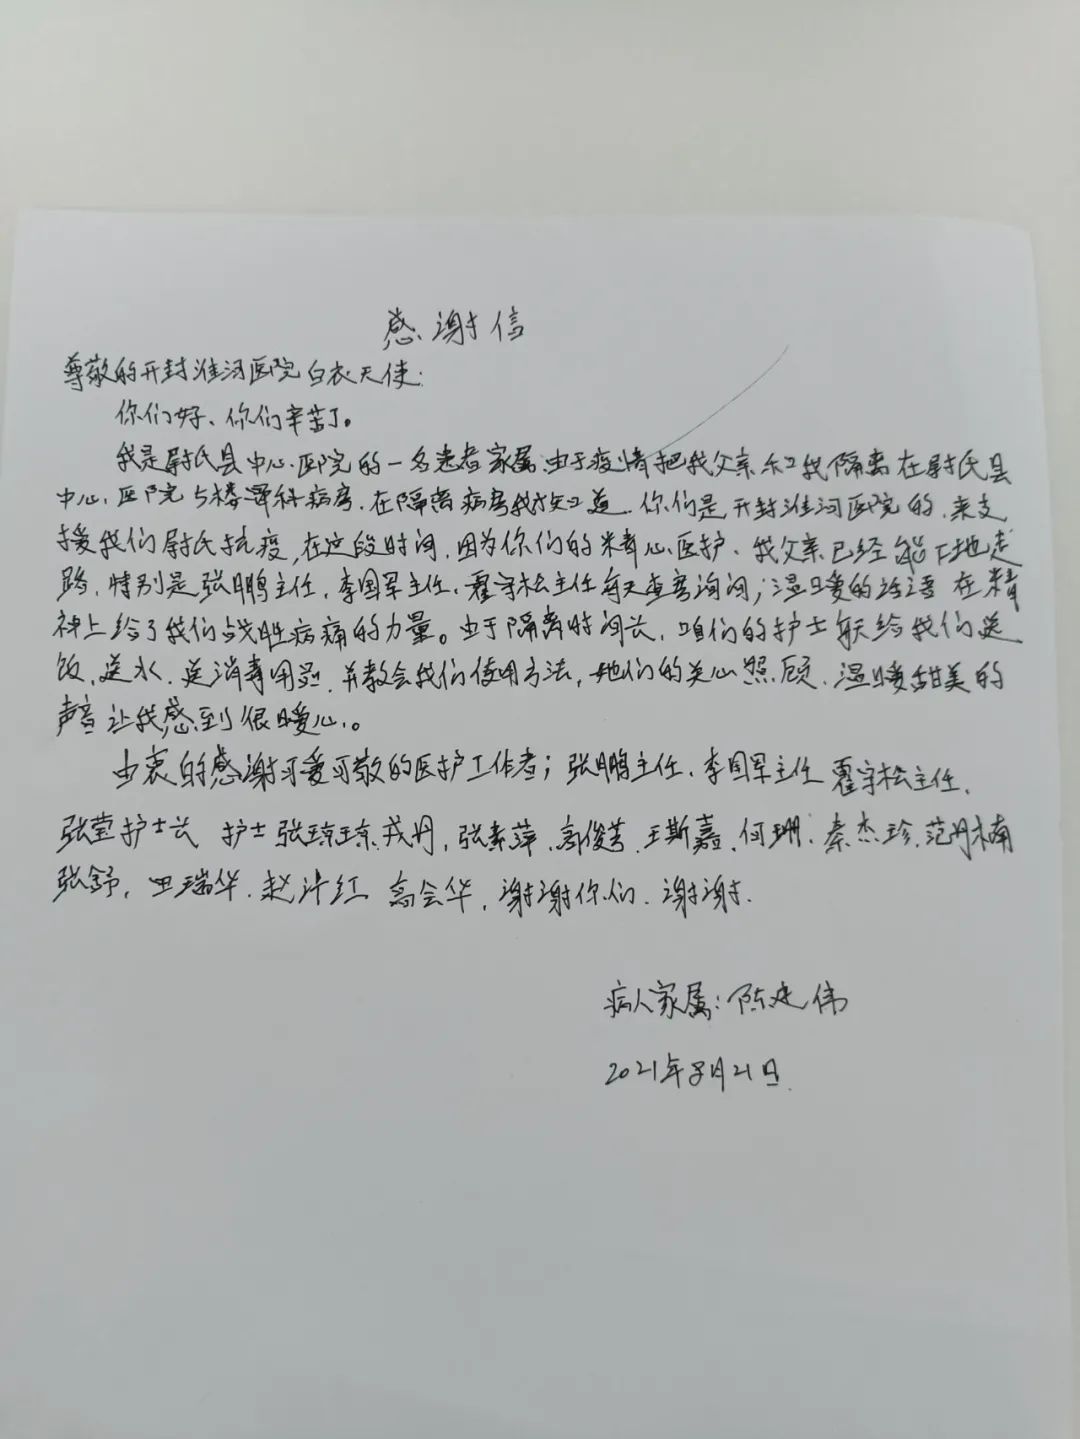 感谢信
尊敬的开封淮河医院白衣天使:
你们好、你们辛苦了。
我是尉氏县中心医院的一名患者家属.由于疫情把我父亲和我隔离在尉氏县
中心医院5楼骨科病房.在隔离病房我才知道.你们是开封淮河医院的.来支
援我们尉氏抗疫,在这段时间,因为你们的精心医护、我父亲已经能下地走
路,特别是张鹏主任.李国军主任、霍守松主任每天查房询问;温暖的话语在精
神上给了我们战胜病痛的力量。由于隔离时间长.咱们的护士每天给我们送
饭,送水.送消毒用品.并教会我们使用方法,她们的关心照顾.温暖甜美的
声音让我感到很暖心。
由衷的感谢可爱可敬的医护工作者;张鹏主任.李国军主任霍守松主任.
张莹护士长 护士张琼琼.戎丹,张素萍.郭俊芳.王斯嘉.何珊.秦杰珍.范丹楠
张舒,田瑞华.赵许红 高会华,谢谢你们.谢谢.
病人家属:陈建伟
2021年8月21日.